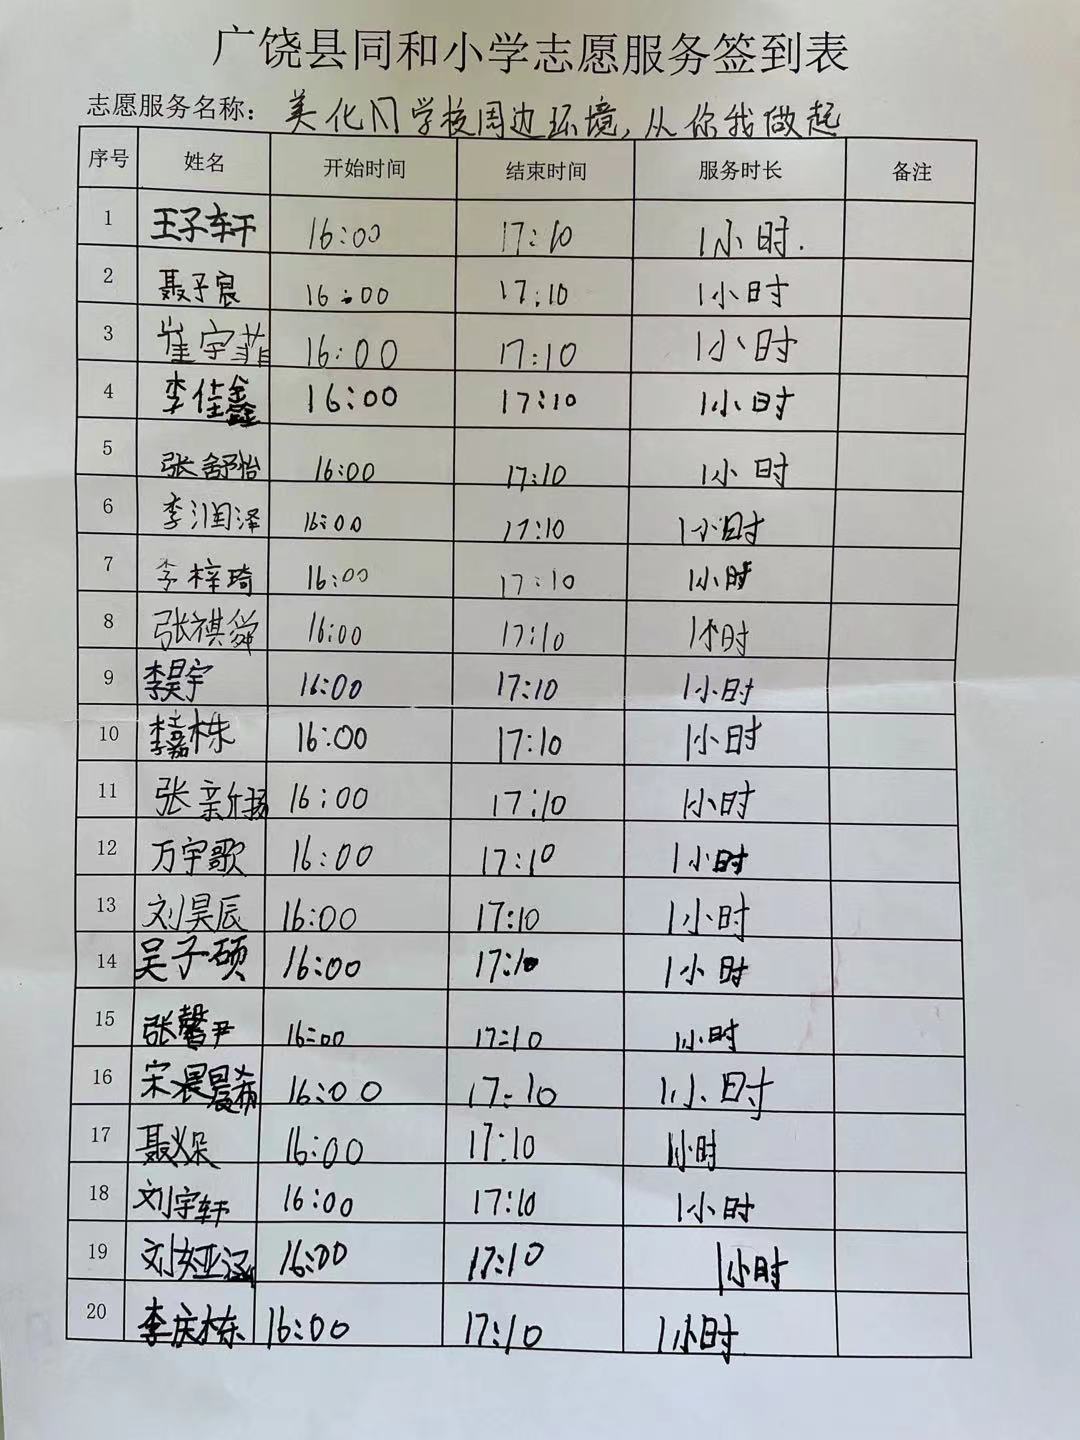 广饶县同和小学志愿服务签到表
志愿服务名称：美化冈学校周边环境,从你我做起
序号 姓名 开始时间 结束时间 服务时长 备注
1 王子轩 16:00 17:10 1小时.
2 聂子宸 16:00 17:10 1小时
3 崔宇菲 16:00 17:10 1小时
4 李佳鑫 16:00 17:10 1小时
5 张舒怡 16:00 17:10 1小时
6 李润泽 16:00 17:10 1小时
7 李梓琦 16:00 17:10 1小时
8 张祺舜 16:00 17:10 1小时
9 李昊宇 16:00 17:10 1小时
10 李嘉栋 16:00 17:10 1小时
11 张新扬 16:00 17:10 1小时
12 万宇歌 16:00 17:10 1小时
13 刘昊辰 16:00 17:10 1小时
14 吴子硕 16:00 17:10 1小时
15 张馨尹 16:00 17:10 1小时
16 宋晨希 16:00 17:10 1小时
17 聂 16:00 17:10 1小时
18 刘宇轩 16:00 17:10 1小时
19 刘娅涵 16:00 17:10 1小时
20 李庆栋 16:00 17:10 1小时